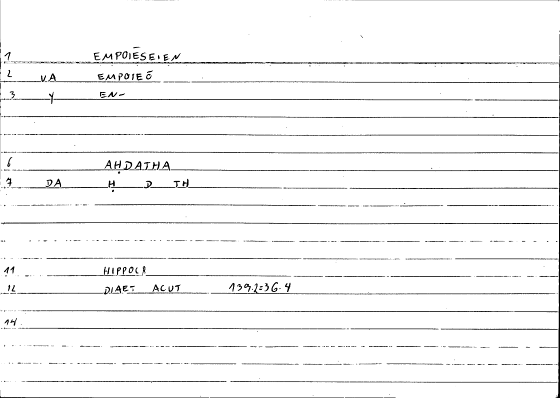 1 EMPOIĒSEIEN
2 VA EMPOIEŌ
3 Y EN-
6 AḤDATHA
7 DA Ḥ D TH
11 HIPPOCR
12 DIAET ACUT 139.2=36.4
14